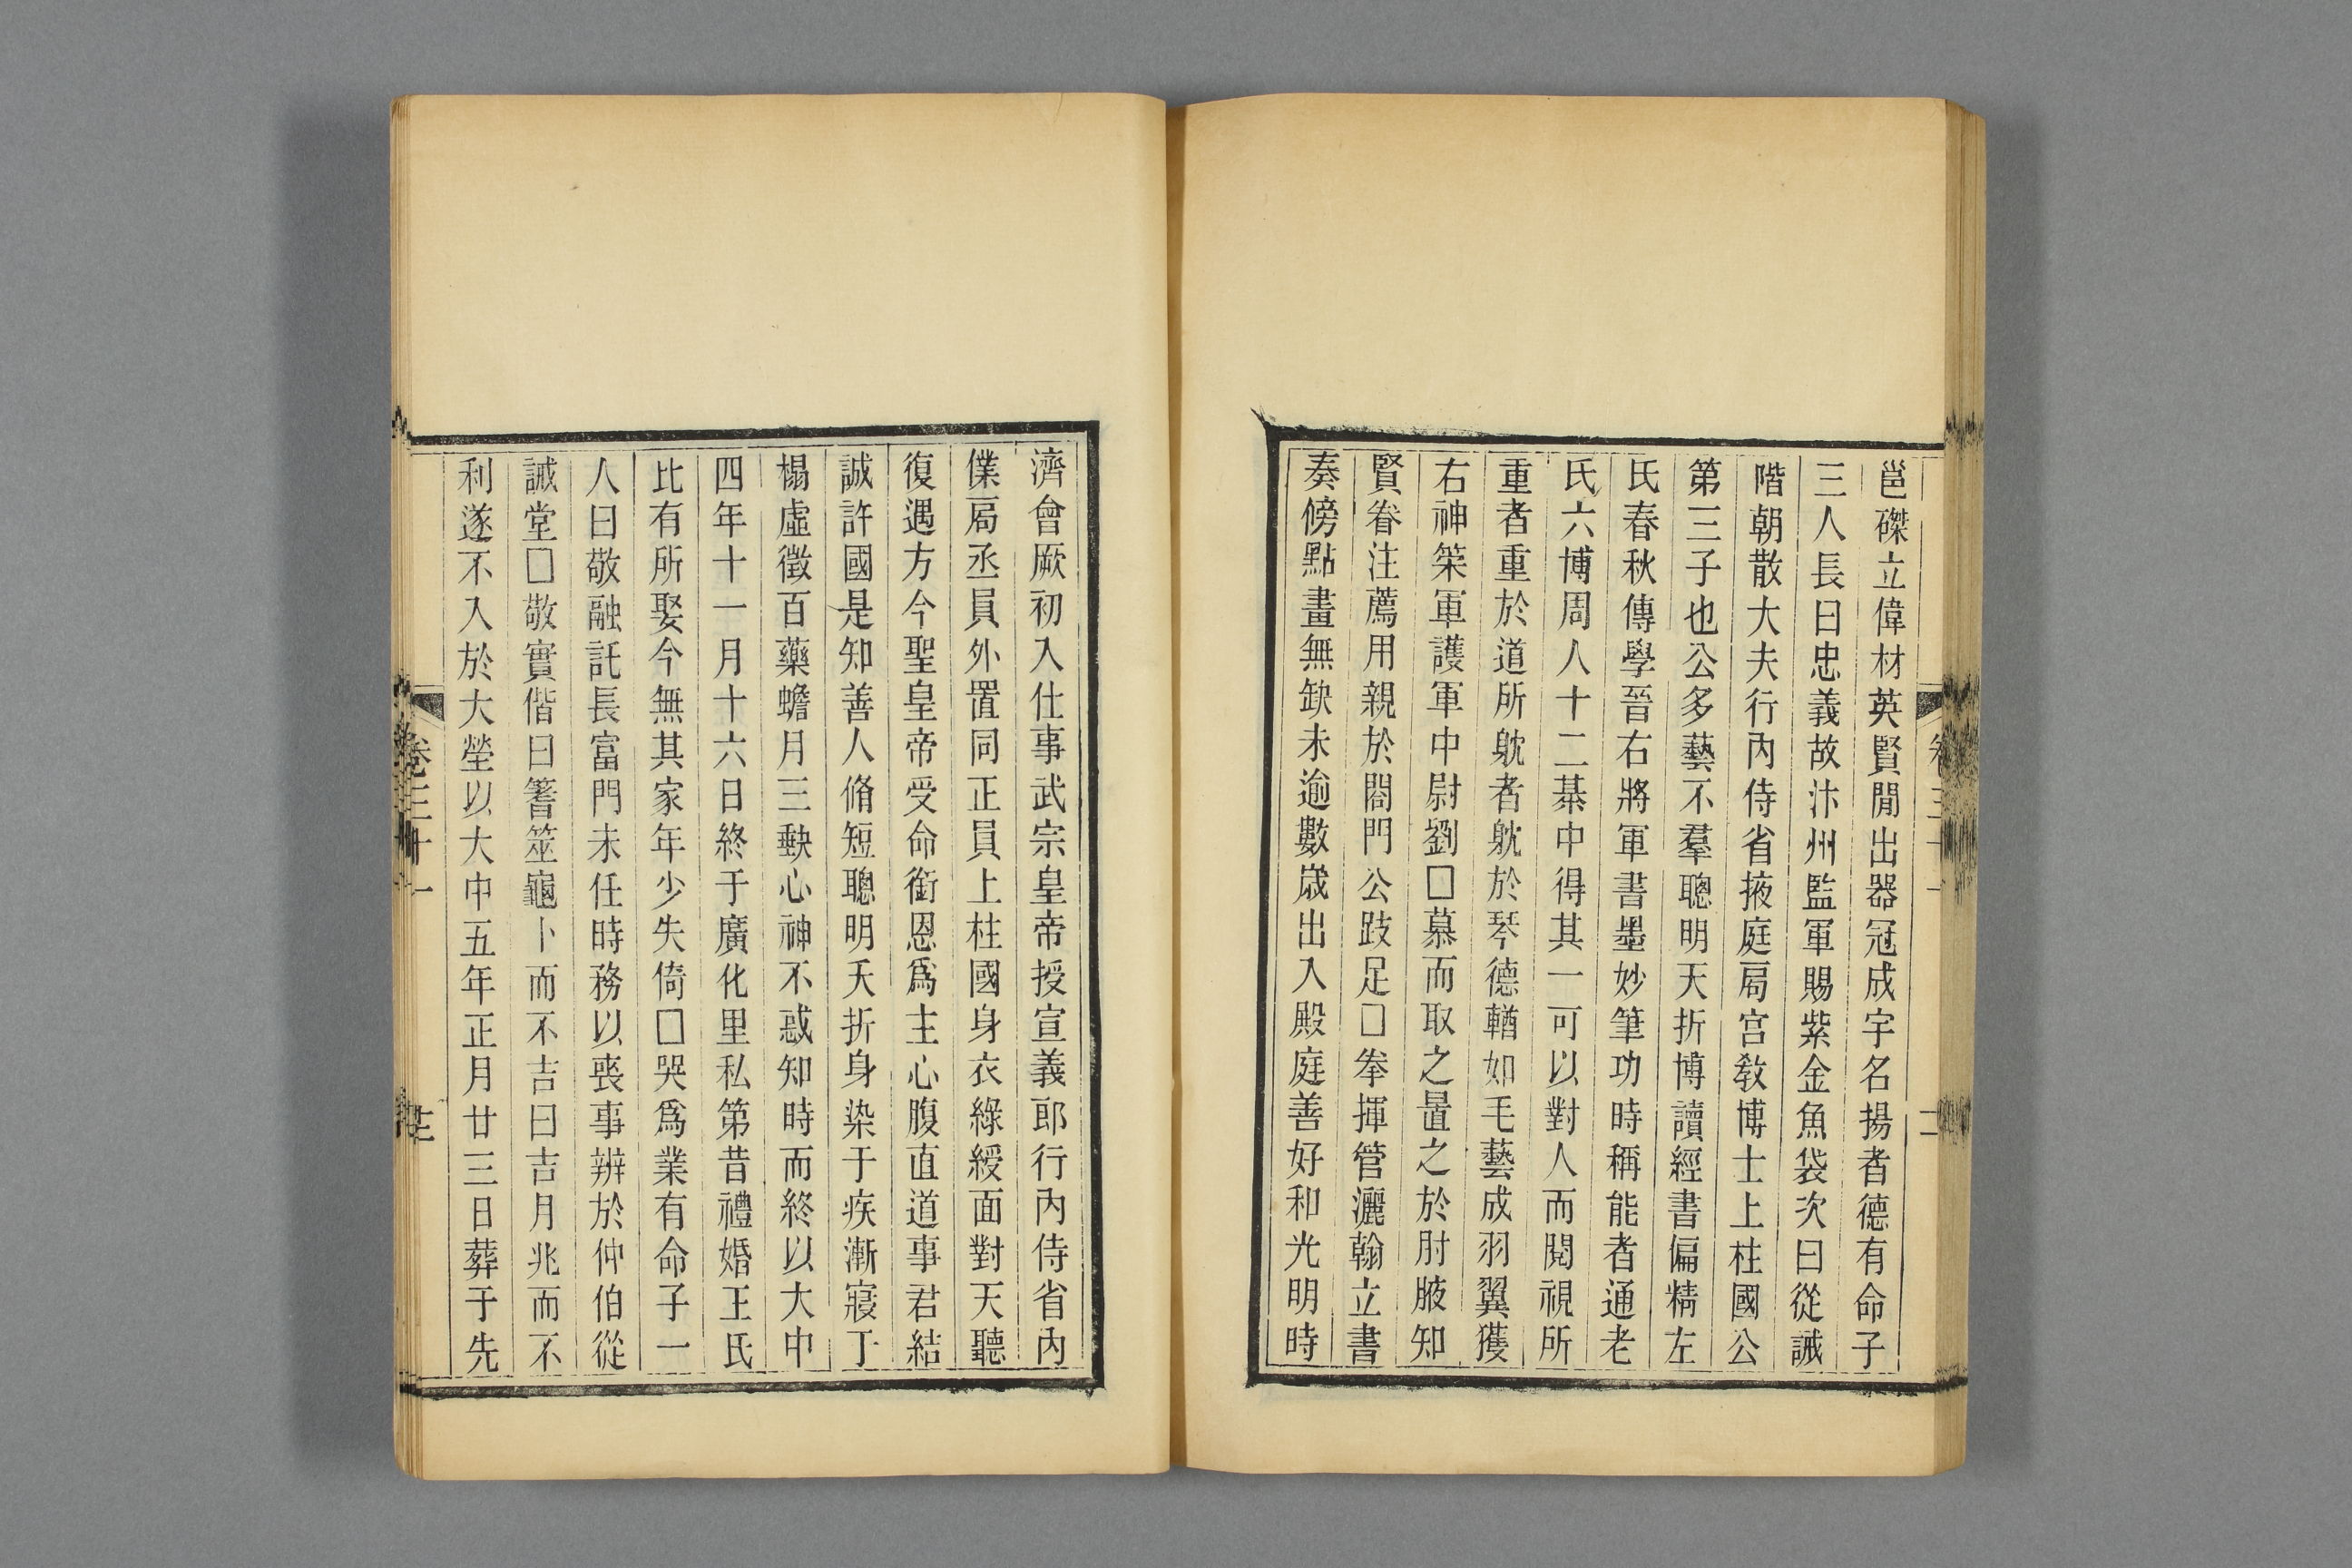 邕磔立偉材英賢閒出器冠成宇名揚者德有命子
三人長曰忠義故汴州監軍賜紫金魚袋次曰從諴
階朝散大夫行內侍省掖庭局宮敎博士上柱國公
第三子也公多藝不羣聰明天折博讀經書偏精左
氏春秋傳學晉右將軍書墨妙筆功時稱能者通老
氏六博周人十二棊中得其一可以對人而閱視所
重者重於道所躭者躭於琴德輶如毛藝成羽翼獲
右神筞軍護軍中尉劉□慕而取之置之於肘腋知
賢眷注薦用親於閤門公跂足□拳揮管灑翰立書
奏傍點畫無缺未逾數歲出入殿庭善好和光明時
濟會厥初入仕事武宗皇帝授宣義郎行內侍省內
僕局丞員外置同正員上柱國身衣綠綬面對天聽
復遇方今聖皇帝受命銜恩爲主心腹直道事君結
誠許國是知善人脩短聰明夭折身染于疾漸寢于
榻虛徵百藥蟾月三缺心神不惑知時而終以大中
四年十一月十六日終于廣化里私第昔禮婚王氏
比有所娶今無其家年少失倚□哭爲業有命子一
人曰敬融託長富門未任時務以喪事辦於仲伯從
諴堂□敬實偕曰蓍筮龜卜而不吉曰吉月兆而不
利遂不入於大塋以大中五年正月廿三日葬于先
卷三十一